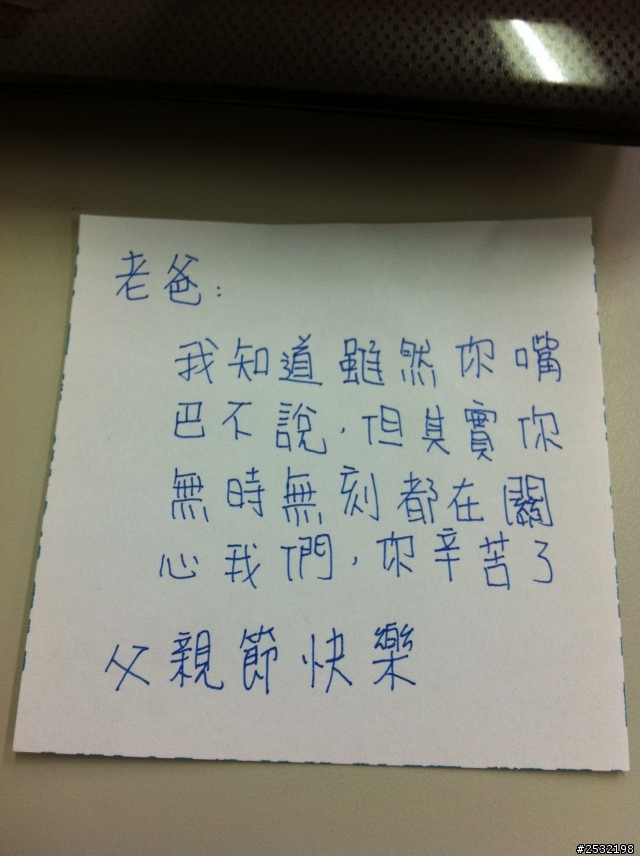 老爸：
我知道雖然你嘴
巴不說，但其實你
無時無刻都在關
心我們，你辛苦了
父親節快樂
#2532198